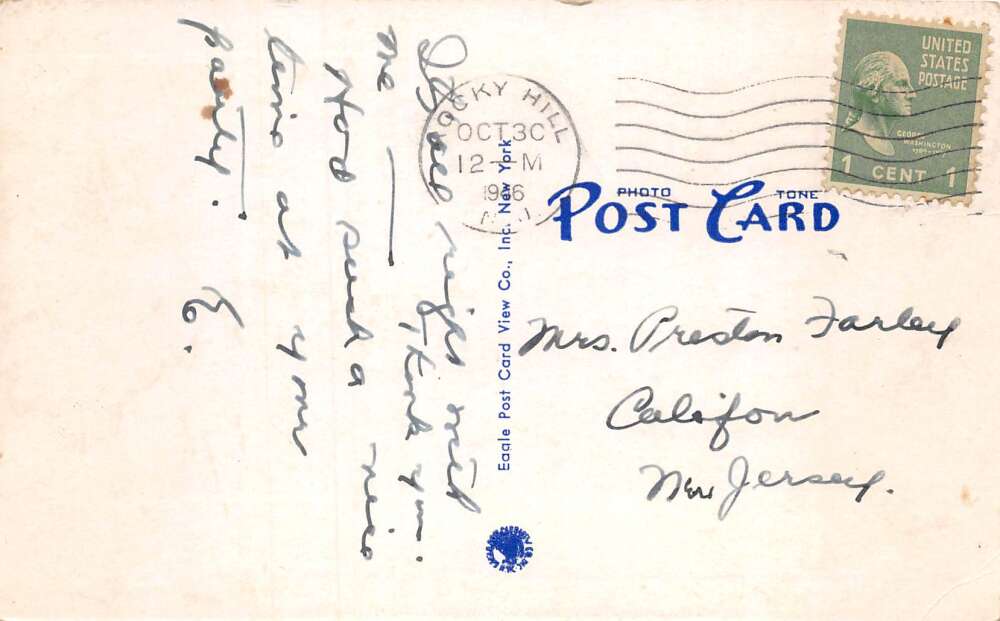 It's all right with
me — Thank you.
Had such a nice
time at your
party. E.
ROCKY HILL
OCT 30
12 — M
1946
N.J.
UNITED
STATES
POSTAGE
GEORGE
WASHINGTON
1 CENT 1
PHOTO TONE
POST CARD
Eagle Post Card View Co., Inc. New York
Mrs. Preston Farley
Califon
New Jersey.